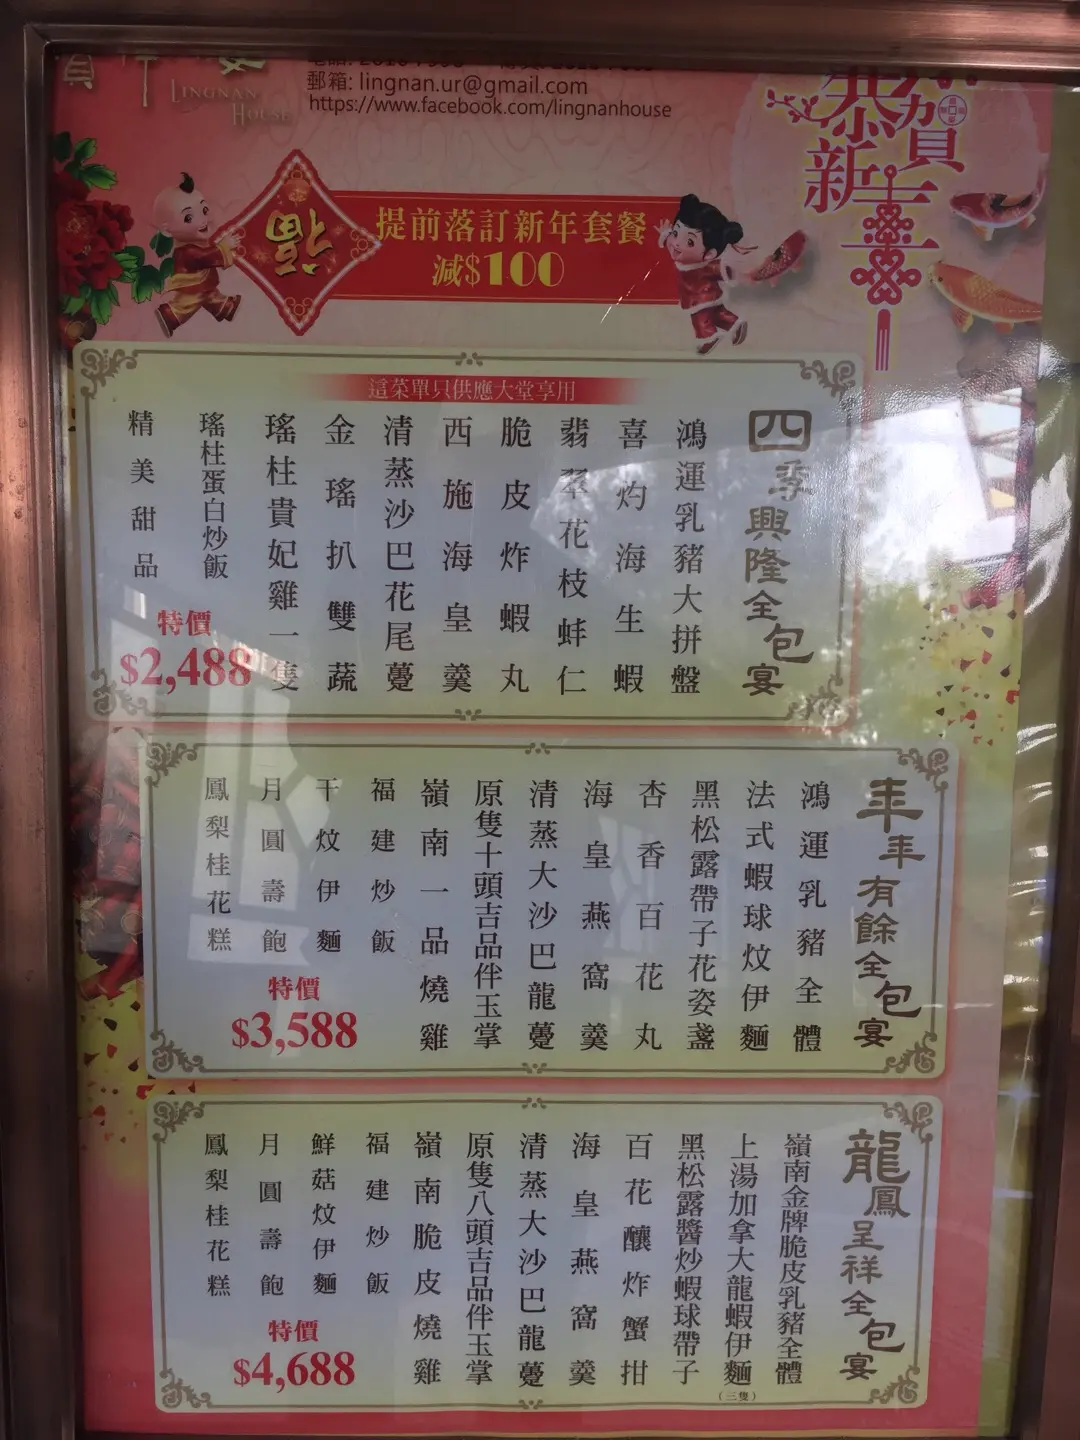 LINGNAN
HOUSE
郵箱: lingnan.ur@gmail.com
https://www.facebook.com/lingnanhouse
恭賀
新
喜
福
提前落訂新年套餐
減$100
這菜單只供應大堂享用
四季興隆全包宴
鴻運乳豬大拼盤
喜灼海生蝦
翡翠花枝蚌仁
脆皮炸蝦丸
西施海皇羹
清蒸沙巴花尾躉
金瑤扒雙蔬
瑤柱貴妃雞一隻
瑤柱蛋白炒飯
精美甜品
特價
$2,488
年年有餘全包宴
鴻運乳豬全體
法式蝦球炆伊麵
黑松露帶子花姿盞
杏香百花丸
海皇燕窩羹
清蒸大沙巴龍躉
原隻十頭吉品伴玉掌
嶺南一品燒雞
福建炒飯
干炆伊麵
月圓壽飽
鳳梨桂花糕
特價
$3,588
龍鳳呈祥全包宴
嶺南金牌脆皮乳豬全體
上湯加拿大龍蝦伊麵
(三隻)
黑松露醬炒蝦球帶子
百花釀炸蟹拑
海皇燕窩羹
清蒸大沙巴龍躉
原隻八頭吉品伴玉掌
嶺南脆皮燒雞
福建炒飯
鮮菇炆伊麵
月圓壽飽
鳳梨桂花糕
特價
$4,688